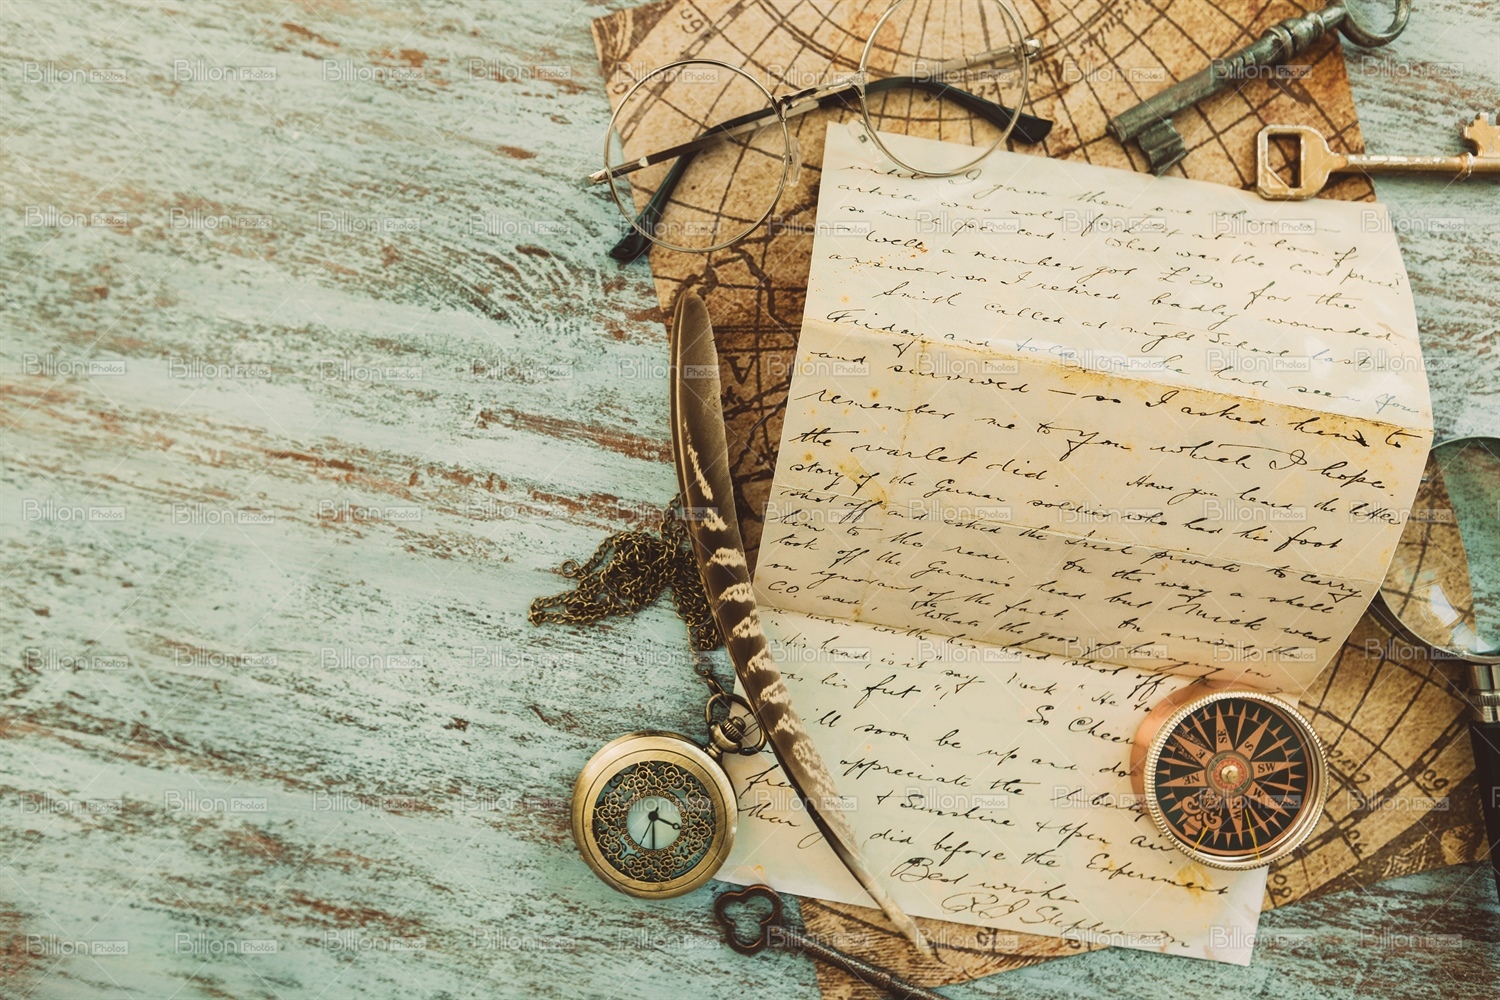 I gave them one
article was sold for at a loss of
so much per cent. What was the cost price
Well, a number got £20 for the
answer, so I retired badly wounded.
Smith called at night School last
Friday and told me he had seen you
and
survived — so I asked him to
remember me to you which I hope
the varlet did. Have you heard the little
story of the German soldier who had his foot
shot off and asked the Irish private to carry
him to the rear. On the way a shell
took off the German's head but Mick went
on ignorant of the fact. On arrival the
C.O. said, "What's the good of
man with his head shot off
his head, is it" says Mick "He
was his foot",
So Cheer
'll soon be up and do
appreciate the
Sunshine + open air
than did before the Experiment
Best wishes
Billion Photos